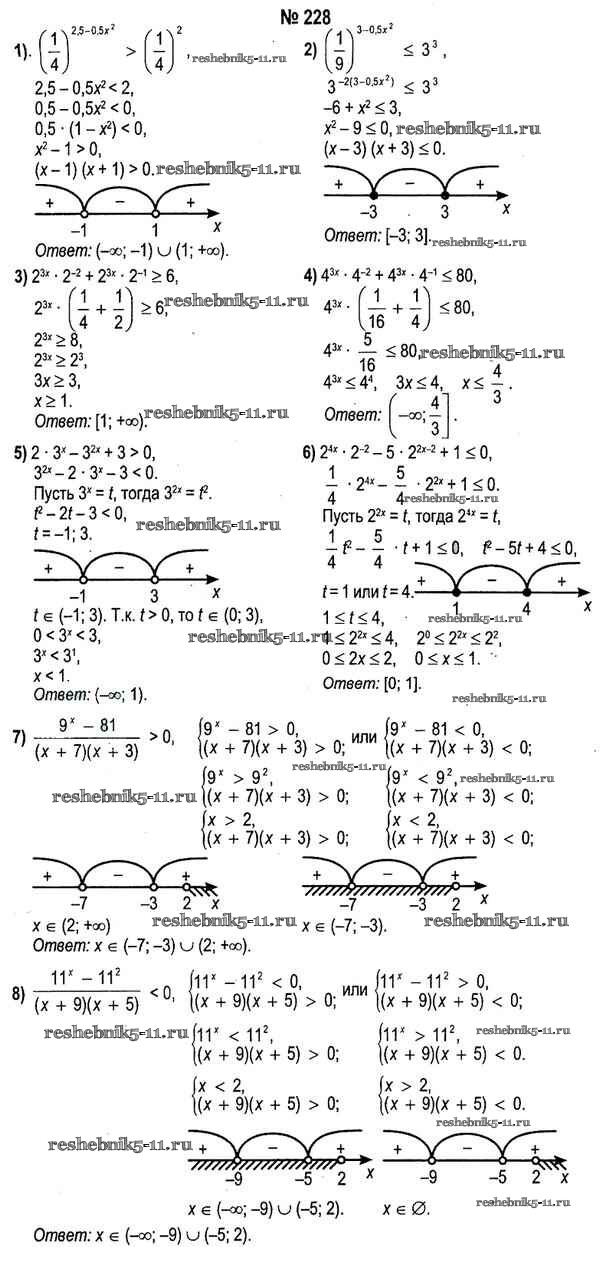 № 228
1). (1/4)^(2,5–0,5x²) > (1/4)², reshebnik5-11.ru
2,5 – 0,5x² < 2,
0,5 – 0,5x² < 0,
0,5 · (1 – x²) < 0,
x² – 1 > 0,
(x – 1) (x + 1) > 0. reshebnik5-11.ru
+ – +
–1 1 x
Ответ: (–∞; –1) ∪ (1; +∞).
2) (1/9)^(3–0,5x²) ≤ 3³ ,
3^(–2(3–0,5x²)) ≤ 3³
–6 + x² ≤ 3,
x² – 9 ≤ 0, reshebnik5-11.ru
(x – 3) (x + 3) ≤ 0.
+ – +
–3 3 x
Ответ: [–3; 3]. reshebnik5-11.ru
3) 2^(3x) · 2^(–2) + 2^(3x) · 2^(–1) ≥ 6,
2^(3x) · (1/4 + 1/2) ≥ 6, reshebnik5-11.ru
2^(3x) ≥ 8,
2^(3x) ≥ 2³,
3x ≥ 3,
x ≥ 1.
Ответ: [1; +∞). reshebnik5-11.ru
4) 4^(3x) · 4^(–2) + 4^(3x) · 4^(–1) ≤ 80,
4^(3x) · (1/16 + 1/4) ≤ 80,
4^(3x) · 5/16 ≤ 80, reshebnik5-11.ru
4^(3x) ≤ 4⁴, 3x ≤ 4, x ≤ 4/3 .
Ответ: (–∞; 4/3].
5) 2 · 3^x – 3^(2x) + 3 > 0,
3^(2x) – 2 · 3^x – 3 < 0.
Пусть 3^x = t, тогда 3^(2x) = t².
t² – 2t – 3 < 0, reshebnik5-11.ru
t = –1; 3.
+ – +
–1 3 x
t ∈ (–1; 3). Т.к. t > 0, то t ∈ (0; 3),
0 < 3^x < 3, reshebnik5-11.ru
3^x < 3¹,
x < 1.
Ответ: (–∞; 1).
6) 2^(4x) · 2^(–2) – 5 · 2^(2x–2) + 1 ≤ 0,
1/4 · 2^(4x) – 5/4 · 2^(2x) + 1 ≤ 0.
reshebnik5-11.ru
Пусть 2^(2x) = t, тогда 2^(4x) = t,
1/4 t² – 5/4 · t + 1 ≤ 0, t² – 5t + 4 ≤ 0,
t = 1 или t = 4. + – +
1 4 x
1 ≤ t ≤ 4, reshebnik5-11.ru
1 ≤ 2^(2x) ≤ 4, 2⁰ ≤ 2^(2x) ≤ 2²,
0 ≤ 2x ≤ 2, 0 ≤ x ≤ 1.
Ответ: [0; 1].
reshebnik5-11.ru
7) (9^x – 81)/((x + 7)(x + 3)) > 0, {9^x – 81 > 0, (x + 7)(x + 3) > 0; или {9^x – 81 < 0, (x + 7)(x + 3) < 0;
reshebnik5-11.ru
{9^x > 9², (x + 7)(x + 3) > 0; {9^x < 9², (x + 7)(x + 3) < 0;
reshebnik5-11.ru reshebnik5-11.ru
{x > 2, (x + 7)(x + 3) > 0; {x < 2, (x + 7)(x + 3) < 0;
+ – + + – +
–7 –3 2 x –7 –3 2 x
x ∈ (2; +∞) reshebnik5-11.ru x ∈ (–7; –3). reshebnik5-11.ru
Ответ: x ∈ (–7; –3) ∪ (2; +∞).
8) (11^x – 11²)/((x + 9)(x + 5)) < 0, {11^x – 11² < 0, (x + 9)(x + 5) > 0; или {11^x – 11² > 0, (x + 9)(x + 5) < 0;
reshebnik5-11.ru {11^x < 11², (x + 9)(x + 5) > 0; {11^x > 11², (x + 9)(x + 5) < 0. reshebnik5-11.ru
{x < 2, (x + 9)(x + 5) > 0; {x > 2, (x + 9)(x + 5) < 0.
reshebnik5-11.ru
reshebnik5-11.ru + – + + – +
–9 –5 2 x –9 –5 2 x
x ∈ (–∞; –9) ∪ (–5; 2). x ∈ ∅. reshebnik5-11.ru
Ответ: x ∈ (–∞; –9) ∪ (–5; 2).